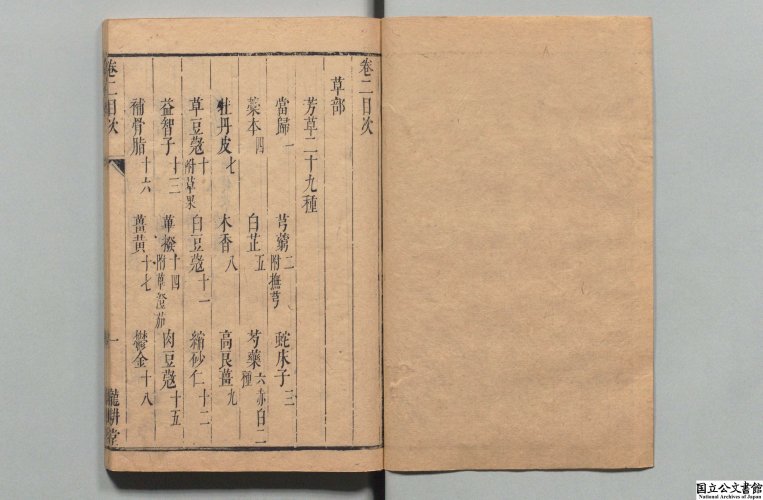 卷二目次
草部
芳草二十九種
當歸一 芎藭二附撫芎 蛇床子三
藁本四 白芷五 芍藥六赤白二種
牡丹皮七 木香八 高良薑九
草豆蔻十附草果 白豆蔻十一 縮砂仁十二
益智子十三 蓽撥十四附蓽澄茄 肉豆蔻十五
補骨脂十六 薑黃十七 鬱金十八
卷二目次 一
國立公文書館
National Archives of Japan